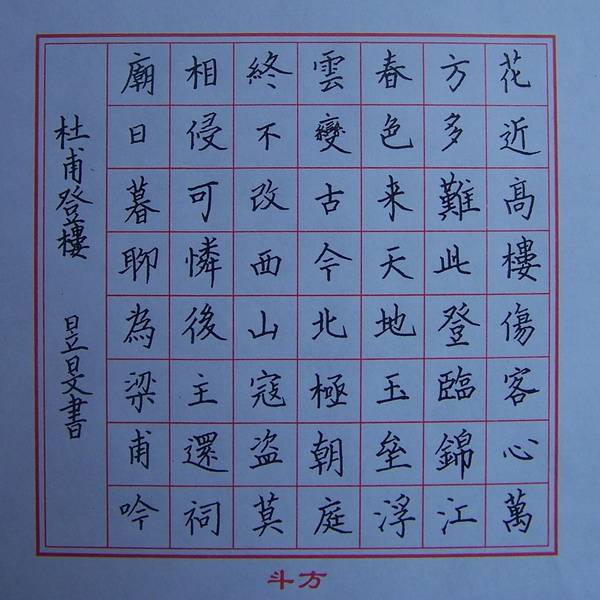 花近高樓傷客心萬
方多難此登臨錦江
春色来天地玉垒浮
雲變古今北極朝庭
終不改西山寇盗莫
相侵可憐後主還祠
廟日暮聊為梁甫吟
杜甫登樓 昱旻書
斗方